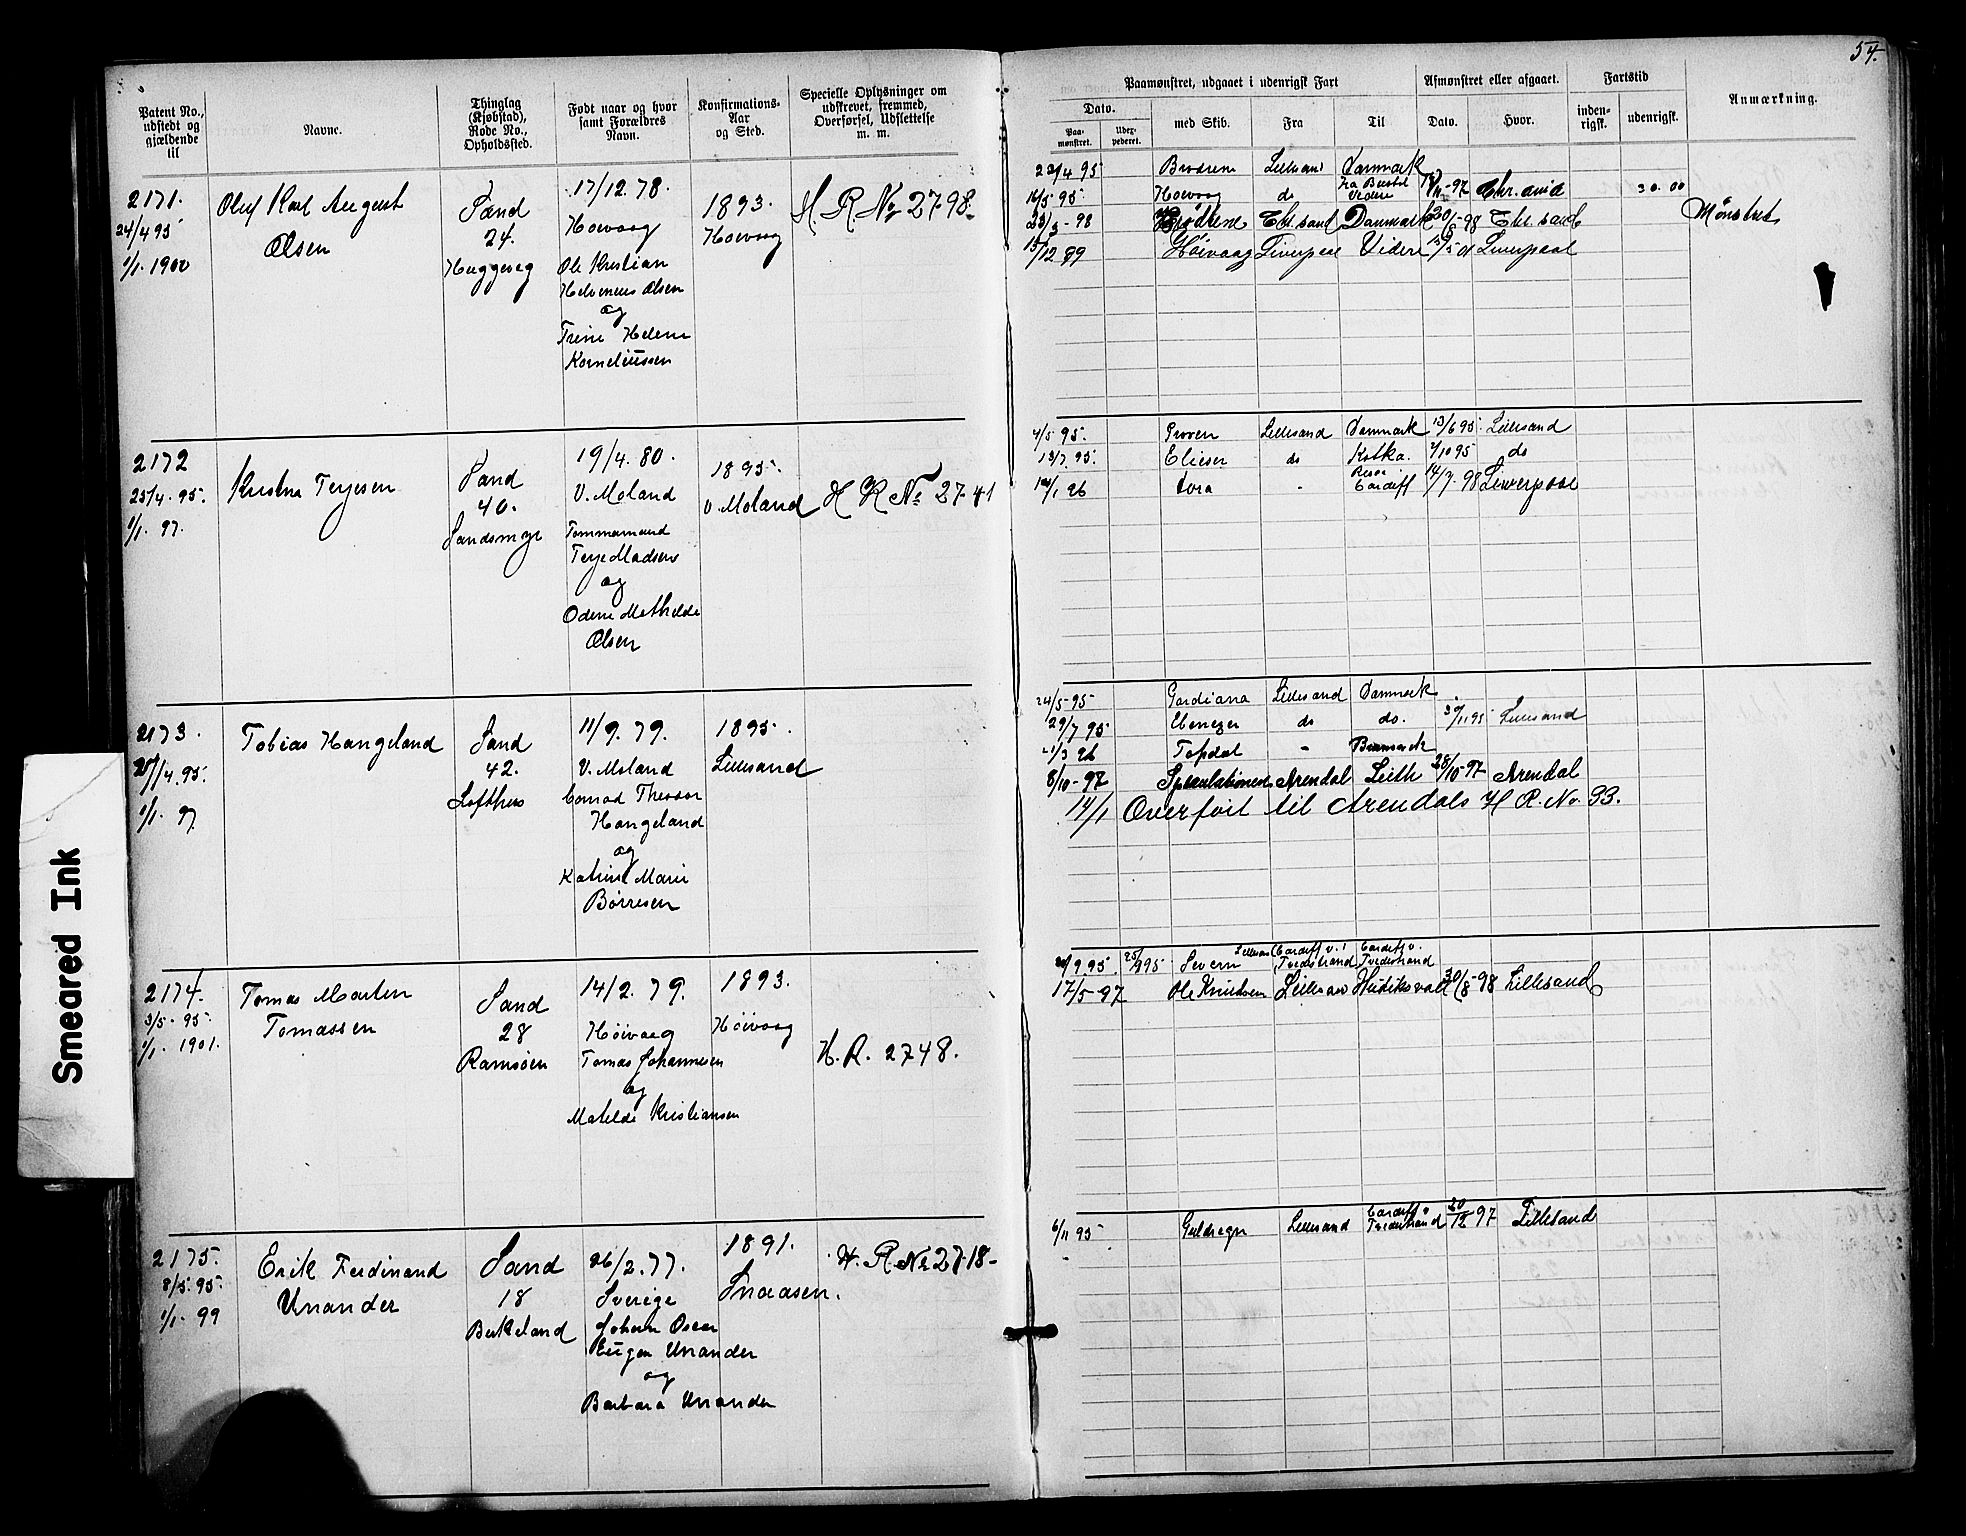 54.
Patent No., udstedt og gjældende til
Navne.
Thinglag (Kjøbstad), Rode No., Opholdssted.
Født naar og hvor samt Forældres Navn.
Konfirmations- Aar og Sted.
Specielle Oplysninger om udskrevet, fremmed, Overførsel, Udslettelse m. m.
Paamønstret, udgaaet i udenrigsk Fart
Dato.
Paa- mønstret.
Uder- pederet.
med Skib.
Fra
Til
Afmønstret eller afgaaet.
Dato.
Hvor.
Fartstid
inden- rigsk.
udenrigsk.
Anmærkning.
2171.
24/4 95
1/1. 1900
Oluf Karl August
Olsen
Sand
24.
Heggeseg
17/12. 78.
Hoevaag
Ole Kristian
Helveneus Olsen
og
Trine Helene
Korneliussen
1893.
Hoevaag
H R No 2798.
23/4 95 Brødrene Lillesand Danmark
16/5 95 Hoevaag do fra Bristol Videre 97 Chr.ania 30.00
23/3 -98 Brødrene Chr.sand Danmark 20/5 -98 Chr.sand Mønstret
15/12 99 Höivaag Liverpool Videre 01 Liverpool
2172
25/4. 95.
1/1. 97.
Kristen Terjesen
Sand
40.
Sandsmyr
19/4. 80.
V. Moland
Tommamand
Terje Madsen
og
Odene Mathilde
Olsen
1895.
V. Moland
H R No 2741
4/5 95. Proven Lillesand Danmark 13/6 95. Lillesand
13/7. 95. Elieser do Kotka. 2/10 95 do
1/1 96 Tora - Cardiff 14/7 -98 Liverpool
2173.
27/4. 95.
1/1. 97
Tobias Hangeland
Sand
42.
Lofthus
11/9. 79.
V. Moland
Conrad Theodor
Hangeland
og
Katrine Marie
Børresen
1895.
Lillesand
24/5-95 Gardiana Lillesand Danmark
29/7 95 Ebenezer do do. 30/11 95 Lillesand
21/3 96 Topdal - Danmark
8/10-97 Spekulationen Arendal Leith 28/10-97 Arendal
14/1 Overføit til Arendals H R. No. 33.
2174.
3/5. 95.
1/1. 1901.
Tomas Marten
Tomassen
Sand
28
Ramsøen
14/2. 79.
Höivaag
Tomas Johannesen
og
Matelde Kristiansen
1893.
Höivaag
H. R. 2748.
9. 95. 25/9 95 Severn Lillesand Cardiff v. Tvedestrand Cardiff v. Tvedestrand
17/5-97 Ole Knudsen Lillesand Hudiksvall 30/8-98 Lillesand
2175.
8/5. 95.
1/1. 99
Erik Ferdinand
Unander
Sand
18
Birkeland
26/2. 77.
Sverige
Johan Oscar
Eugen Unander
og
Barbara Unander
1891.
Snaasen.
H. R No 2718-
6/11 95 Guldregn Lillesand Cardiff v Tvedestrand 30/12 97 Lillesand
Smeared Ink